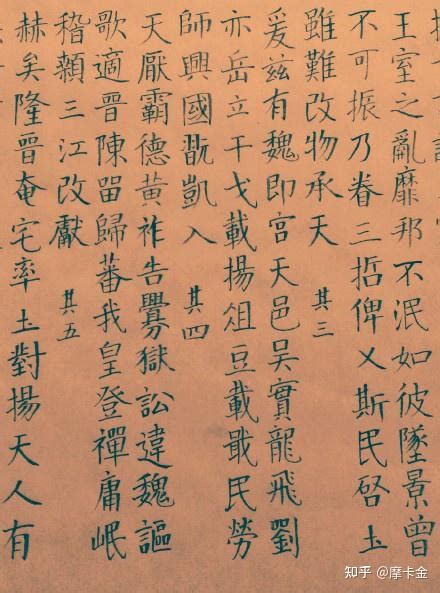 王室之亂靡邦不泯如彼墜景曾
不可振乃眷三哲俾乂斯民啓土
雖難改物承天 其三
爰茲有魏即宮天邑吳實龍飛劉
亦岳立干戈載揚俎豆載戢民勞
師興國翫凱入 其四
天厭霸德黃祚告釁獄訟違魏謳
歌適晉陳留歸蕃我皇登禪庸岷
稽顙三江改獻 其五
赫矣隆晉奄宅率土對揚天人有
知乎 @摩卡金